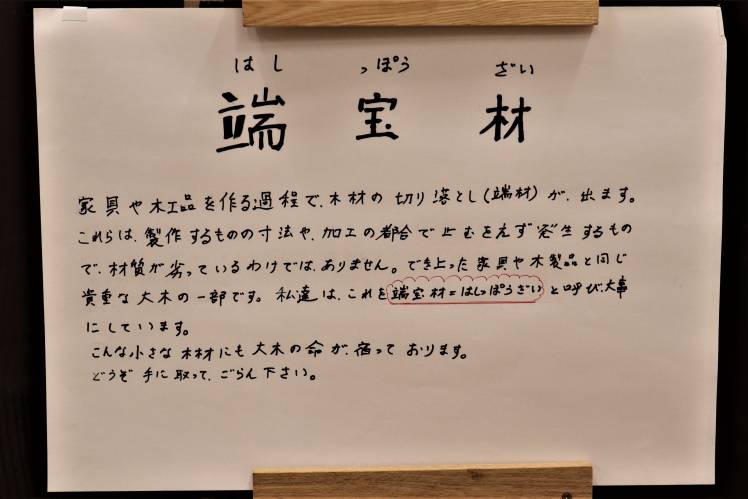 はし っぽう ざい
端 宝 材
家具や木工品を作る過程で、木材の切り落とし(端材)が、出ます。
これらは、製作するものの寸法や、加工の都合で止むをえず発生するもの
で、材質が劣っているわけでは、ありません。でき上った家具や木製品と同じ
貴重な大木の一部です。私達は、これを端宝材=はしっぽうざいと呼び、大事
にしています。
こんな小さな木材にも大木の命が、宿っております。
どうぞ手に取って、ごらん下さい。